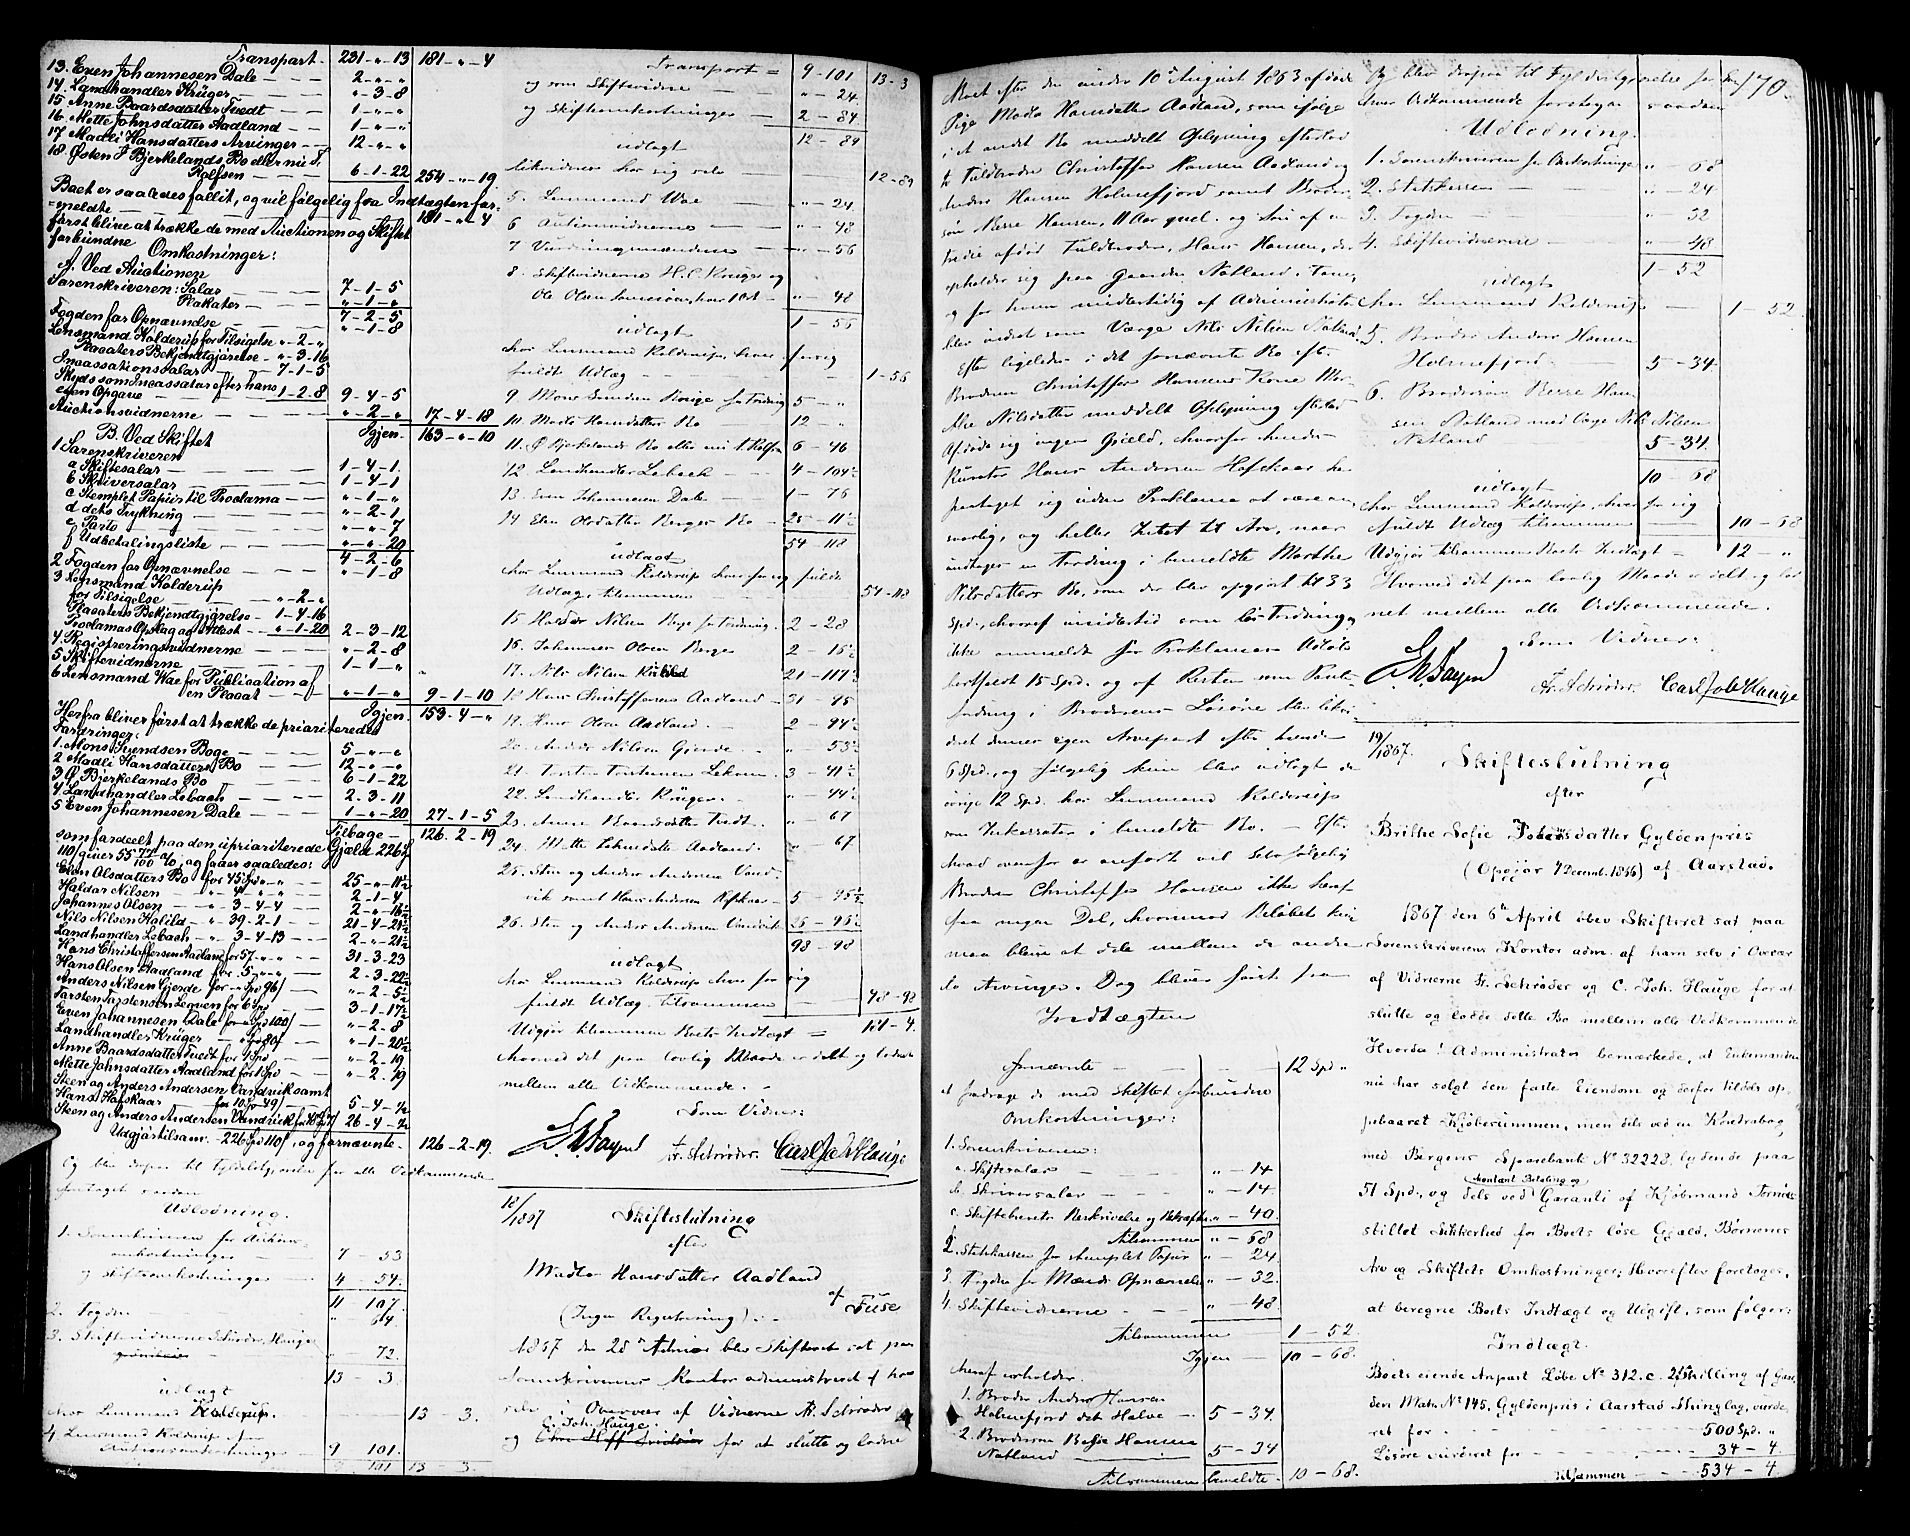 Transport. 231 - " - 13 181 - " - 4
13. Even Johannesen Dale — 2 - " - "
14. Landhandler Krüger — " - 3 - 8
15 Anne Baardsdatter Tvedt — 1 - " - "
16. Mette Johnsdatter Aadland — 1 - " - "
17 Madli Hansdatters Arvinger — 12 - " - "
18. Østen J Bjerkelands Bo eller nu T.
Rolfsen — 6 - 1 - 22 254 - " - 19
Boet er saaledes fallit, og vil følgelig fra Indtægten for-
-meldte — 181 - " - 4
først blive at trække de med Auctionen og Skiftet
forbundne Omkostninger:
A. Ved Auctionen
Sorenskriveren: Salar — 7 - 1 - 5
Plakater — " - 1 - "
7 - 2 - 5
Fogden for Opnævnelse — " - 1 - 8
Lensmand Kolderup for Tilsigelse " - 2 - "
Placaters Bekjendtgjørelse - " - 3 - 16
Incassationssalar — 7 - 1 - 5
Skyds som Incassator efter hans
egen Opgave — 1 - 2 - 8 9 - 4 - 5
Auctionsvidnerne — " - 2 - " 17 - 4 - 18
Igjen. 163 - " - 10
B. Ved Skiftet
1 Sorenskriveren
a Skiftesalar — 1 - 4 - 1
b Skriversalar — 1 - 4 - 1
c Stemplet Papiir til Proclama — " - 1 - "
d dets Trykning — " - 2 - 1
e Porto — " - " - 7
f Udbetalingsliste — " - " - 20
4 - 2 - 6
2 Fogden for Opnævnelse — " - 1 - 8
3 Lensmand Kolderup
for Tilsigelse — " - 2 - "
Placaters Bekjendtgjørelse - 1 - 4 - 16
Proclamas Opslag og Attest - " - 1 - 20 2 - 3 - 12
4 Registreringsvidnerne — " - 2 - 8
5 Skiftevidnerne — 1 - 1 - "
6 Lensmand Wae for Publication af
en Placat — " - 1 - " 9 - 1 - 10
Igjen. 153 - 4 - "
Herfra bliver først at trække de prioriterede
Fordringer:
1. Mons Svendsen Boge — 5 - " - "
2 Madli Hansdatters Bo — 12 - " - "
3 Ø Bjerkelands Bo — 6 - 1 - 22
4 Landhandler Lebach — 2 - 3 - 11
5 Even Johannesen Dale — 1 - " - 20 27 - 1 - 5
Tilbage — 126 - 2 - 19
som fordeelt paa den uprioriterede Gjæld 226
110/ giver 55 77/100 %, og faaer saaledes:
Elen Olsdatters Bo for 45 Spd " - " — 25 - " - 11½
Haldor Nilsen — " 4 " " — 2 - 1 - 4
Johannes Olsen — " 3 - 4 - 4 — 2 - " - 16½
Nils Nilsen Kalild - " 39 - 2 - 1 — 21 - 4 - 21½
Landhandler Lebach - " 3 - 4 - 13 — 2 - " - 21½
Hans Christoffersen Aadland for 57 - " - " — 31 - 3 - 23
Hans Olsen Aadland for 5 " - " — 2 - 3 - 22½
Anders Nilsen Gjerde for " Spd 96/ — " - 2 - 5½
Torsten Torstensen Legven for 6 Spd — 3 - 1 - 17½
Even Johannesen Dale for " Spd 100/ — " - 2 - 8
Landhandler Krüger — " Spd 80/ — " - 1 - 20½
Anne Baardsdatter Tvedt for 1 Spd — " - 2 - 19
Mette Johnsdatter Aadland for 1 Spd — " - 2 - 19
Steen og Anders Andersen Vandvik samt
Hans Hafskaar for 10 Spd 49/ — 5 - 4 - ½
Steen og Anders Andersen Vandvik for 26 - 4 - ½
Udgjør tilsam: 226 Spd 110/, og fornævnte - 126 - 2 - 19.
Og blev derpaa til Fyldestgjørelse for alle Vedkommende
foretaget saadan
Udlodning.
1. Sorenskriveren for Auktions-
omkostninger — 7 - 53
og Skifteomkostninger — 4 - 54
11 107
2. Fogden — " - 64
3. Skiftevidnerne Schrøder, Hauge
" - 72.
13 - 3.
udlagt
hos Lensmand Kolderup. 13 - 3.
4 Lensmand Kolderup for
Auktionsomkostninger 9 101.
9 101 13 - 3.

Transport = 9 - 101 13 - 3
og som Skiftevidne — " - 24
og Skifteomkostninger — 2 - 84
udlagt 12 - 89
likvideres hos sig selv — 12 - 89
5. Lensmand Wae — " - 24.
6 Auctionsvidnerne — " - 48
7 Vurderingsmændene — " - 56
8. Skiftevidnerne H. C. Krüger og
Ole Olsen — " - 48
udlagt 1 - 56
hos Lensmand Kolderup, hvor for sig
fuldt Udlæg — 1 - 56
9 Mons Svendsen Bouge for Fordring 5 — "
10 Madli Hansdatters Bo — 12 "
11. Ø Bjerkelands Bo eller nu T. Rolfsen 6 - 46
12 Landhandler Lebach — 4 - 104½
13. Even Johannesen Dale — 1 - 76
14 Elen Olsdatter Berges Bo — 25 - 11½
udlagt 54 - 118
hos Lensmand Kolderup hvor for sig fuldt
Udlæg, tilsammen — 54 - 118
15 Haldor Nilsen Boge for Fordring. 2 - 28
16. Johannes Olsen Berge 2 - 16½
17. Nils Nilsen Kalild 21 - 117½
18 Hans Christoffersen Aadland — 31 95
19. Hans Olsen Aadland. — 2 - 94½
20. Anders Nilsen Gjerde. — " 53½
21. Torsten Torstensen Lekven. 3 41½
22. Landhandler Krüger. — " 44½
23. Anne Baardsdatter Tvedt. " - 67
24. Mette Johnsdatter Aadland. " 67
25. Sten og Anders Andersen Vand-
vik samt Hans Andersen Hafskaar - 5 - 96½
26. Sten og Anders Andersen Vandvik 26 - 96½
98 - 98
udlagt
hos Lensmand Kolderup hvor for sig
fuldt Udlæg tilsammen — 98 - 98
Udgjør tilsammen Boets Indtægt = 181 - 4.
Hvorved det paa lovlig Maade er delt og loddet
mellem alle Vedkommende. -
Som Vidner:
Fr. Schrøder. Carl Joh Hauge

18/1867 Skifteslutning
efter
Madlo Hansdatter Aadland
af Fuse
(Ingen Registrering). -
1867 den 28de Februar blev Skifteret sat paa
Sorenskriverens Kontor administreret af ham
selv i Overvær af Vidnerne Fr. Schrøder
C. Joh. Hauge.
og for at slutte og lodne

170.
Boet efter den under 10de August 1863 afdøde
Pige Madlo Hansdatter Aadland, som ifølge
i et andet Bo meddelt Oplysning efterlod
to Fuldbrødre Christoffer Hansen Aadland og
Anders Hansen Holmefjord samt Broder-
søn Berre Hansen, 11 Aar gml. og Søn af en
tredie afdød Fuldbroder, Hans Hansen, der
opholder sig paa Gaarden Natland i Fane,
og for hvem midlertidig af Administrator
blev indsat som Værge Nils Nilsen Natland.
Efter ligeledes i det fornævnte Bo eft.
Broderen Christoffer Hansens Kone Mar-
the Nilsdatter meddelt Oplysning efterlod
Afdøde sig ingen Gjæld, hvorfor hendes
Kurator Hans Andersen Hafskaar har
paataget sig uden Proklama at være an-
svarlig, og heller Intet til Arv, naar
undtages en Fordring i bemeldte Marthe
Nilsdatters Bo, som der blev opgjort til 33
Spd., hvoraf imidlertid som løs Fordring og
ikke anmeldt før Proklamas Udløb
bortfaldt 15 Spd. og af Resten som Pant-
fordring i Broderens Løsøre blev likvi-
deret dennes egen Arvepart efter hende
6 Spd., og følgelig kun blev udlagt de
øvrige 12 Spd. hos Lensmand Kolderup
som Inkassator i bemeldte Bo. — Efter
hvad ovenfor er anført vil selvfølgelig
Broderen Christoffer Hansen ikke heraf
faa nogen Del, hvorimod Beløbet kun
maa blive at dele mellem de andre
to Arvinger. Dog bliver først fra
Indtægten
fornævnte — 12 Spd "
at fradrage de med Skiftet forbundne
Omkostninger:
1. Sorenskriveren:
a. Skiftesalar — " - 14
b. Skriversalar — " - 14
c. Skiftebrevets Beskrivelse og Bekræft. " - 40
Tilsammen " - 68
2. Statskassen for stemplet Papir " - 24
3. Fogden for Mænds Opnævnelse " - 32.
4. Skiftevidnerne — " - 48
Tilsammen 1 - 52
Igjen — 10 - 68.
heraf erholder.
1. Broder Anders Hansen
Holmefjord det Halve — 5 - 34.
2. Brodersøn Berre Hansen
Natland 5 - 34
Tilsammen bemeldte - 10 - 68.

Og blev derpaa til Fyldestgjørelse for en-
hver Vedkommende foretagen saadan
Udlodning.
1. Sorenskriveren for Omkostninger " - 68
2. Statskassen — " - 24
3. Fogden — " - 32
4. Skiftevidnerne — " - 48
1 - 52
udlagt
hos Lensmand Kolderup — 1 - 52.
5. Broder Anders Hansen
Holmefjord. 5 - 34.
6. Brodersøn Berre Han-
sen Natland med Værge Nils Nilsen
Natland — 5 - 34.
10 - 68
udlagt
hos Lensmand Kolderup, hver for sig
fuldt Udlæg tilsammen — 10 - 68
Udgjør tilsammen Boets Indtægt — 12 - "
Hvorved det paa lovlig Maade er delt og lod-
net mellem alle Vedkommende.
Som Vidner:
Fr. Schrøder. Carl Joh Hauge

19/1867. Skifteslutning
efter
Brithe Sofie Johansdatter Gyldenpris
(Opgjør 7 Decemb. 1866) af Aarstad.
1867 den 6te April blev Skifteret sat paa
Sorenskriverens Kontor adm. af ham selv i Overvær
af Vidnerne Fr. Schrøder og C. Joh. Hauge for at
slutte og lodde dette Bo mellem alle Vedkommende
Hvorda: Administrator bemærkede, at Enkemanden
nu har solgt den faste Eiendom og derfor tildels op-
pebaaret Kjøbesummen, men dels ved en Kontrabog
med Bergens Sparebank No 32223, lydende paa
kontant Betaling og
51 Spd., og dels ved Garanti af Kjøbmand Tornøes
stillet Sikkerhed for Boets løse Gjæld, Børnenes
Arv og Skiftets Omkostninger; Hvorefter foretoges,
at beregne Boets Indtægt og Udgift, som følger:
Indtægt.
Boets eiende Anpart Løbe No 312. c. 2⅕ Skilling af Gaar-
den Matr. No 145, Gyldenpris i Aarstad Thinglag, vurde-
ret for — 500 Spd. "
Løsøre vurderet for — 34 - 4.
tilsammen — 534 - 4